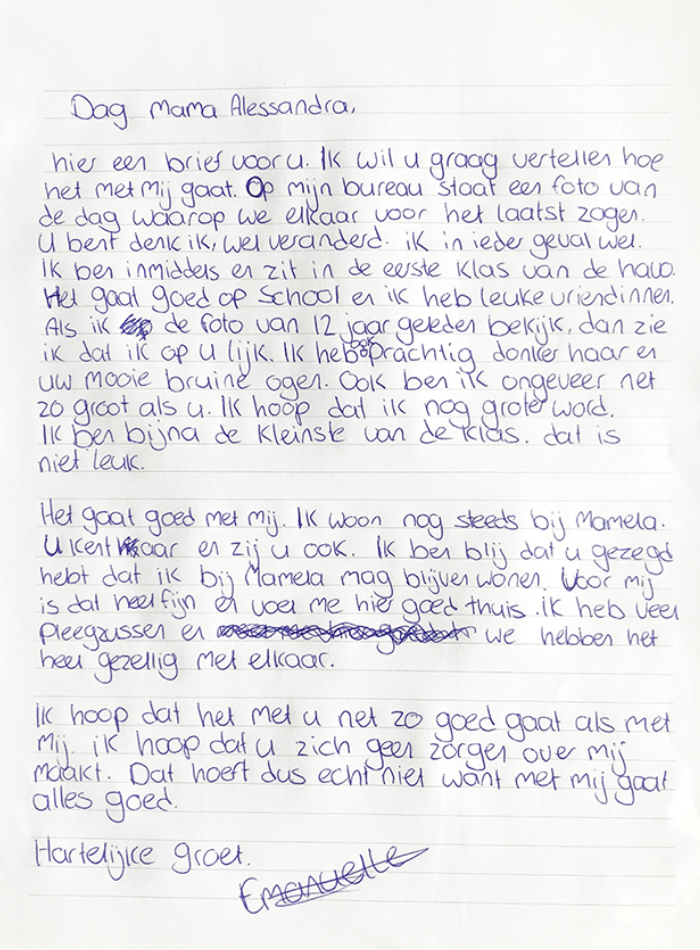 Dag mama Alessandra,
hier een brief voor u. Ik wil u graag vertellen hoe
het met mij gaat. Op mijn bureau staat een foto van
de dag waarop we elkaar voor het laatst zagen.
U bent denk ik, wel veranderd. ik in ieder geval wel.
Ik ben inmiddels en zit in de eerste klas van de havo.
Het gaat goed op School en ik heb leuke vriendinnen.
Als ik de foto van 12 jaar geleden bekijk, dan zie
ik dat ik op u lijk. Ik heb ook prachtig donker haar en
uw mooie bruine ogen. Ook ben ik ongeveer net
zo groot als u. Ik hoop dat ik nog groter word.
Ik ben bijna de kleinste van de klas. dat is
niet leuk.
Het gaat goed met mij. Ik woon nog steeds bij Mamela.
U kent haar en zij u ook. Ik ben blij dat u gezegd
hebt dat ik bij Mamela mag blijven wonen. Voor mij
is dat heel fijn en voel me hier goed thuis. ik heb veel
pleegzussen en we hebben het
heel gezellig met elkaar.
Ik hoop dat het met u net zo goed gaat als met
mij. ik hoop dat u zich geen zorgen over mij
maakt. Dat hoeft dus echt niet want met mij gaat
alles goed.
Hartelijke groet.
Emanuelle